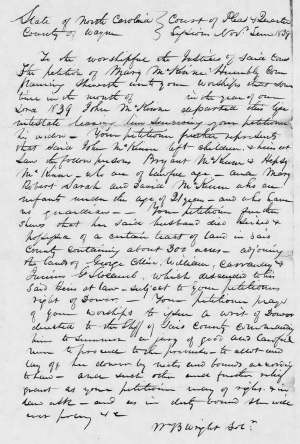 State of North Carolina } Court of Pleas & Quarter
County of Wayne } Session Nov Term 1839
To the worshipful the Justices of said Court
The petition of Mary McKinne Humbly Com
plaining sheweth unto your Worships that some
time in the month of in the year of our
Lord 1839 John McKinne departed this life
intestate leaving him surviving your petitioner
his widow — Your petitioner further represents
that said John McKinne left children & heirs at
Law the following persons Bryant McKinne &
McKinne — who are of lawful age — and Mary
Robert Sarah and David McKinne who are
infants under the age of 21 years — and who have
no guardian — Your petitioner further
shews that her said husband died seized &
possessed of a certain tract of land in said
County containing about 300 acres — adjoining
the lands of George William
&
which descended to his
said heirs at law — subject to your petitioners
right of Dower — Your petitioner prays
of your worships to issue a writ of Dower
directed to the Shff of said County commanding
him to summon a jury of good and lawful
men to proceed to the premises — to allot and
lay off her dower by metes and bounds according
to law — and such other and further relief
grant as your petitioner may of right & in
law ask — and as in duty bound she will
ever pray &c
W B Wright Sol.